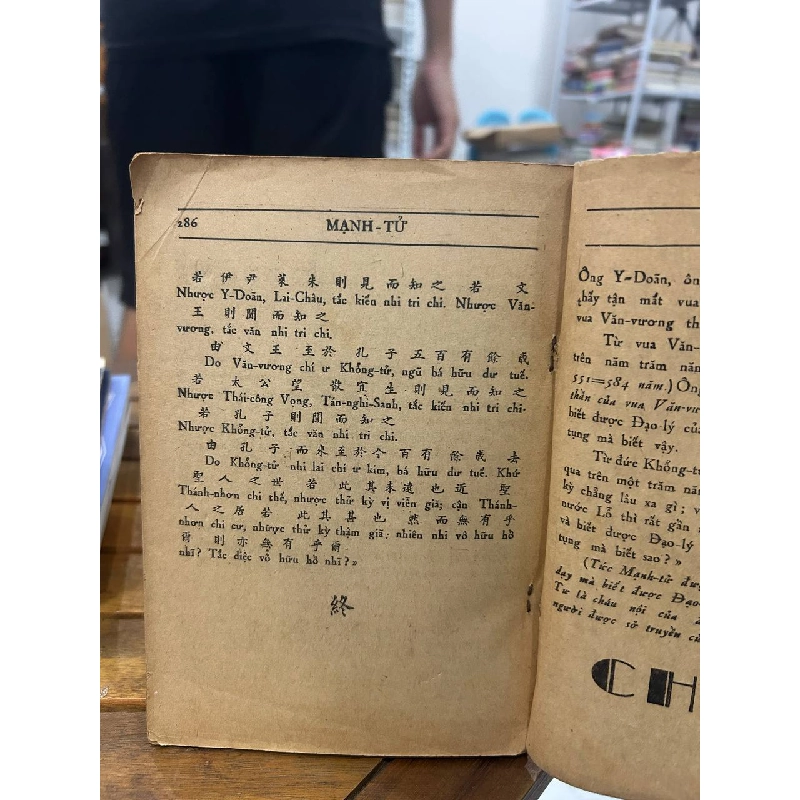 286
MẠNH-TỬ
若 伊 尹 萊 朱 則 見 而 知 之 若 文
Nhược Y-Doãn, Lai-Châu, tắc kiến nhi tri chi. Nhược Văn-
王 則 聞 而 知 之
vương, tắc văn nhi tri chi.
由 文 王 至 於 孔 子 五 百 有 餘 歲
Do Văn-vương chí ư Khổng-tử, ngũ bá hữu dư tuế.
若 太 公 望 散 宜 生 則 見 而 知 之
Nhược Thái-công Vọng, Tản-nghi-Sanh, tắc kiến nhi tri chi.
若 孔 子 則 聞 而 知 之
Nhược Khổng-tử, tắc văn nhi tri chi.
由 孔 子 而 來 至 於 今 百 有 餘 歲 去
Do Khổng-tử nhi lai chí ư kim, bá hữu dư tuế. Khứ
聖 人 之 世 若 此 其 未 遠 也 近 聖
Thánh-nhơn chi thế, nhược thử kỳ vị viễn giã; cận Thánh-
人 之 居 若 此 其 甚 也 然 而 無 有 乎
nhơn chi cư, nhược thử kỳ thậm giã; nhiên nhi vô hữu hồ
爾 則 亦 無 有 乎 爾
nhĩ? Tắc diệc vô hữu hồ nhĩ?»
終
Ông Y-Doãn, ôn
thấy tận mắt vua
vua Văn-vương th
Từ vua Văn-
tiên năm trăm năm
551=584 năm.) Ông
thần của vua Văn-vươ
biết được Đạo-lý củ
tụng mà biết vậy.
Từ đức Khổng-tử
qua trên một trăm năm
kỳ chẳng lâu xa gì; v
nước Lỗ thì rất gần
và biết được Đạo-lý
tụng mà biết sao?»
(Tức Mạnh-tử đượ
dạy mà biết được Đạo-
Tư là cháu nội của
người được sử truyền củ
CH